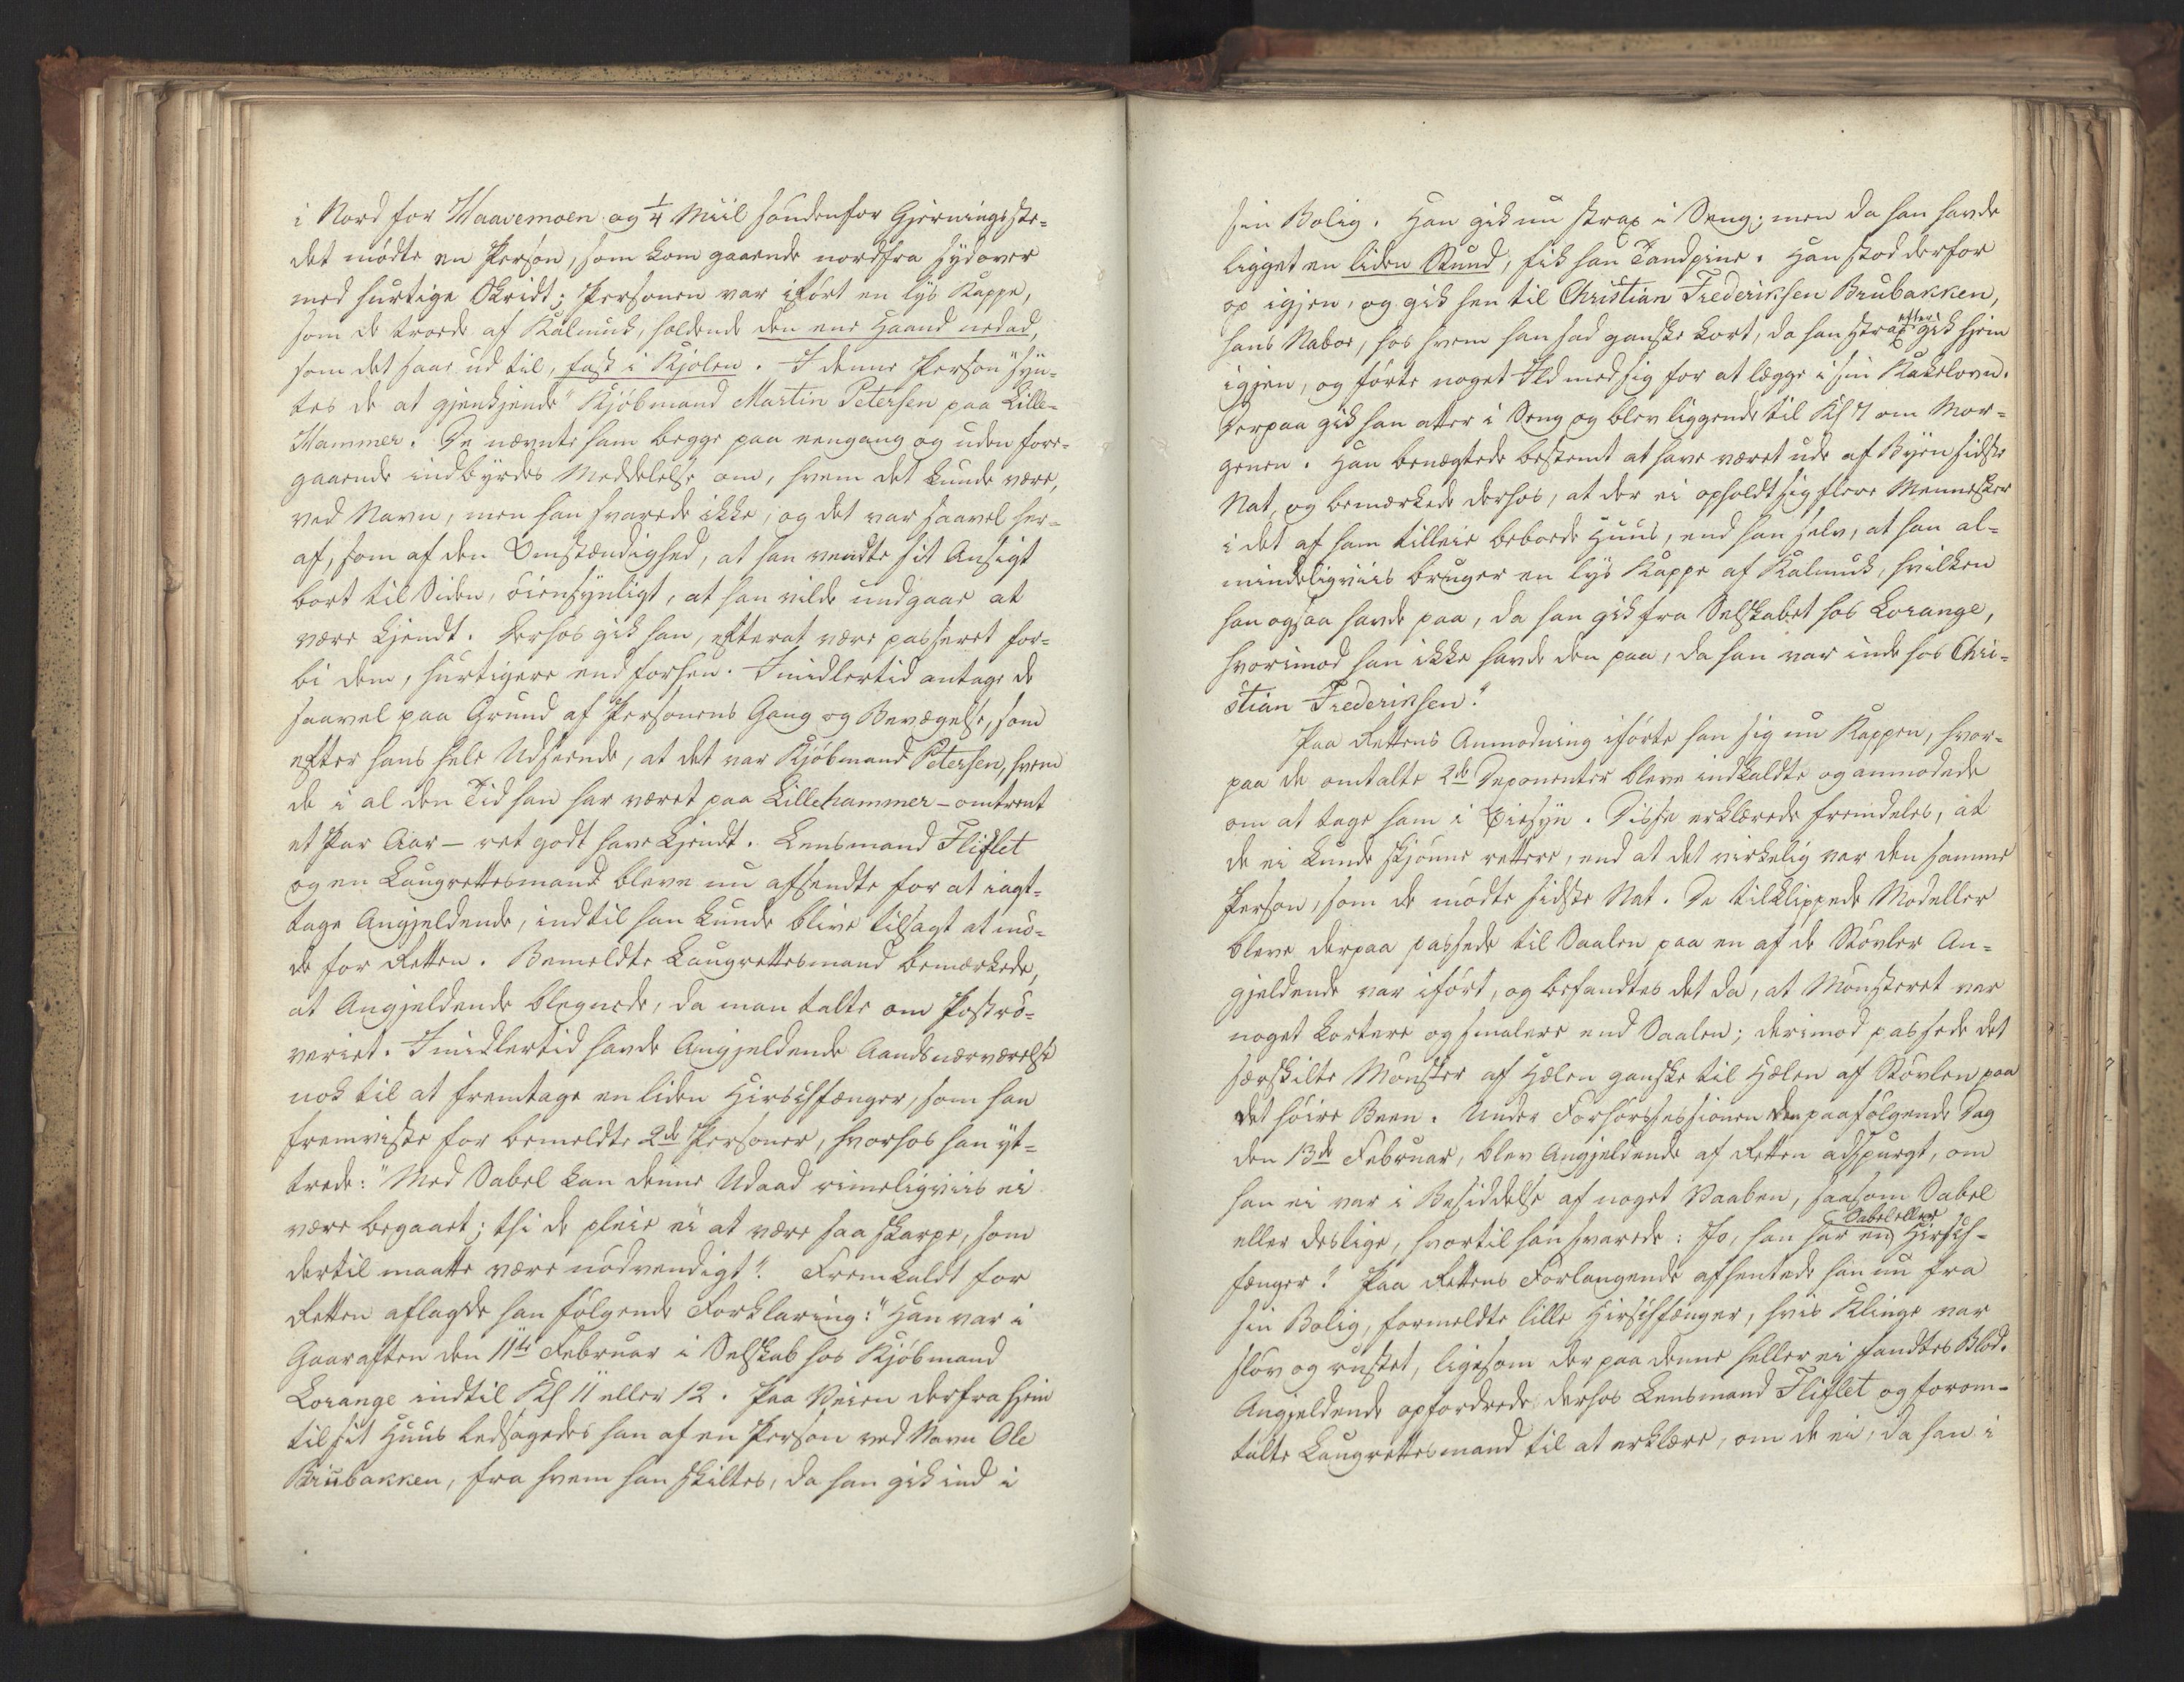 i Nord for Haavemoen og 1/4 Miil söndenfor Gjerningsste-
det mödte en Person, som kom gaaende nordfra sydover
med hurtige Skridt; Personen var iført en lys Kappe,
som de troede af Kalmuk, holdende den ene Haand nedad,
som det saae ud til, fast i Kjolen. I denne Person "syn-
tes de at gjenkjende" Kjöbmand Martin Petersen paa Lille-
Hammer. De nævnte ham begge paa eengang og uden fore-
gaaende indbyrdes Meddelelse om, hvem det kunde være,
ved Navn, men han svarede ikke, og det var saavel her-
af, som af den Omstændighed, at han vendte sit Ansigt
bort til Siden, öiensynligt, at han vilde undgaae at
være kjendt. Derhos gik han, efterat være passeret for-
bi dem, hurtigere end forhen. Imidlertid antage de
saavel paa Grund af Personens Gang og Bevægelse, som
efter hans hele Udseende, at det var Kjöbmand Petersen, hvem
de i al den Tid han har været paa Lillehammer - omtrent
et Par Aar - ret godt have kjendt. Lensmand Fliflet
og en Laugrettesmand bleve nu afsendte for at iagt-
tage Angjeldende, indtil han kunde blive tilsagt at mö-
de for Retten. Bemeldte Laugrettesmand bemærkede,
at Angjeldende blegnede, da man talte om Poströ-
veriet. Imidlertid havde Angjeldende Aandsnærværelse
nok til at fremtage en liden Hirschfænger, som han
fremviste for bemeldte 2de Personer, hvorhos han yt-
trede: "Med Sabel kan denne Udaad rimeligviis ei
være begaaet; thi de pleie ei at være saa skarpe, som
dertil maatte være nödvendigt". Fremkaldt for
Retten aflagde han fölgende Forklaring: "Han var i
Gaaraftes den 11te Februar i Selskab hos Kjöbmand
Lorange indtil Kl 11 eller 12. Paa Veien derfra hjem
til sit Huus ledsagedes han af en Person ved Navn Ole
Brubakken, fra hvem han skiltes, da han gik ind i
sin Bolig. Han gik nu strax i Seng; men da han havde
ligget en liden Stund, fik han Tandpine. Han stod derfor
op igjen, og gik hen til Christian Frederiksen Brubakken,
hans Naboe, hos hvem han sad ganske kort, da han strax efter gik hjem
igjen, og förte noget Ild med sig for at lægge i sin Kakelovn.
Derpaa gik han atter i Seng og blev liggende til Kl 7 om Mor-
genen. Han benægtede bestemt at have været ude af Byen sidste
Nat, og bemærkede derhos, at der ei opholdt sig flere Mennesker
i det af ham tilleie beboede Huus, end han selv, at han al-
mindeligviis bruger en lys Kappe af Kalmuk, hvilken
han ogsaa havde paa, da han gik fra Selskabet hos Lorange,
hvorimod han ikke havde den paa, da han var inde hos Chri-
stian Frederiksen".
Paa Rettens Anmodning iförte han sig nu Kappen, hvor-
paa de omtalte 2de Deponenter bleve indkaldte og anmodede
om at tage ham i Öiesyn. Disse erklærede fremdeles, at
de ei kunde skjönne rettere, end at det virkelig var den samme
Person, som de mödte sidste Nat. De tilklippede Modeller
bleve derpaa passede til Saalen paa en af de Stövler An-
gjeldende var ifört, og befandtes det da, at Mönsteret var
noget kortere og smalere end Saalen; derimod passede det
særskilte Mönster af Hælen ganske til Hælen af Stövlen paa
det höire Been. Under Forhörssessionen den paafölgende Dag
den 13de Februar, blev Angjeldende af Retten adspurgt, om
han ei var i Besiddelse af noget Vaaben, saasom Sabel
eller deslige, hvortil han svarede: Jo, han har en Sabel eller Hirsch-
fænger". Paa Rettens Forlangende afhentede han nu fra
sin Bolig, formeldte lille Hirschfænger, hvis Klinge var
slöv og rustet, ligesom der paa denne heller ei fandtes Blod.
Angjeldende opfordrede derhos Lensmand Fliflet og forom-
talte Laugrettesmand til at erklære, om de ei, da han i